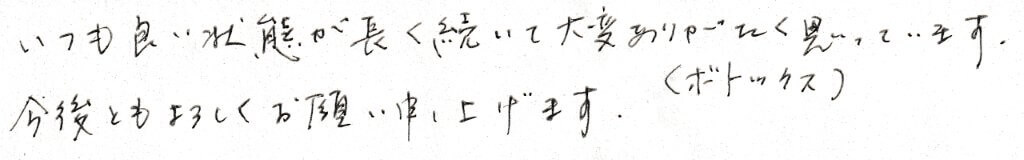 いつも良い状態が長く続いて大変ありがたく思っています.
(ボトックス)
今後ともよろしくお願い申し上げます.